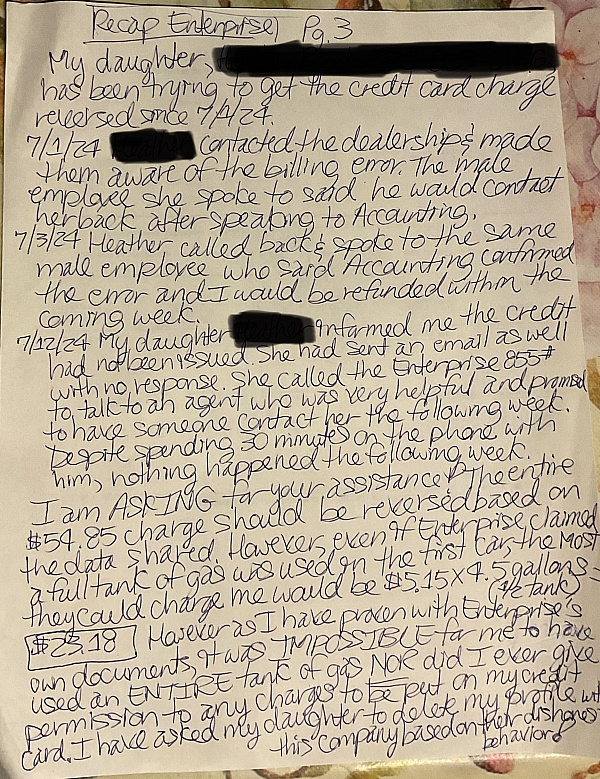 Recap Enterprise Pg. 3
My daughter,
has been trying to get the credit card charge
reversed since 7/1/24.
7/1/24 contacted the dealership & made
them aware of the billing error. The male
employee she spoke to said he would contact
her back after speaking to Accounting.
7/3/24 Heather called back & spoke to the same
male employee who said Accounting confirmed
the error and I would be refunded within the
coming week.
7/12/24 My daughter informed me the credit
had not been issued. She had sent an email as well
with no response. She called the Enterprise 855#
to talk to an agent who was very helpful and promised
to have someone contact her the following week.
Despite spending 30 minutes on the phone with
him, nothing happened the following week.
I am ASKING for your assistance! The entire
$54.85 charge should be reversed based on
the data shared. However, even if Enterprise claimed
a full tank of gas was used in the first car, the most
they could charge me would be $5.15 x 4.5 gallons =
$23.18 However as I have proven with Enterprise's
own documents, it was IMPOSSIBLE for me to have
used an ENTIRE tank of gas NOR did I ever give
permission to any charges to be put on my credit
card. I have asked my daughter to delete my profile with
this company based on their dishonest
behavior!